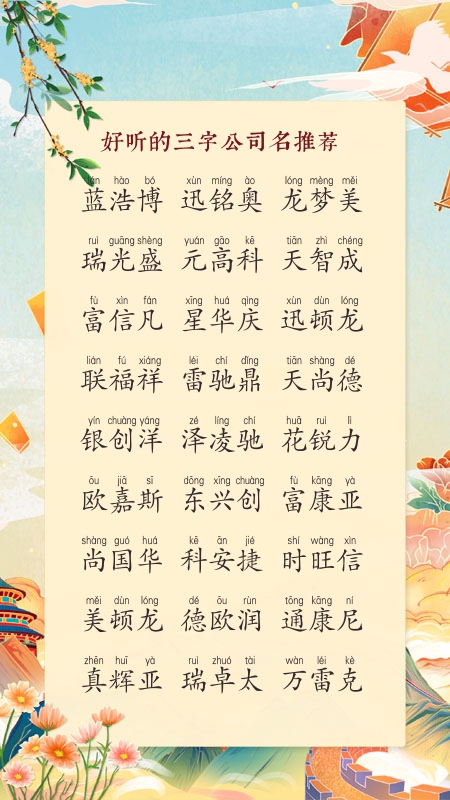 好听的三字公司名推荐
lán hào bó xùn míng ào lóng mèng měi
蓝浩博 迅铭奥 龙梦美
ruì guāng shèng yuán gāo kē tiān zhì chéng
瑞光盛 元高科 天智成
fù xìn fán xīng huá qìng xùn dùn lóng
富信凡 星华庆 迅顿龙
lián fú xiáng léi chí dǐng tiān shàng dé
联福祥 雷驰鼎 天尚德
yín chuàng yáng zé líng chí huā ruì lì
银创洋 泽凌驰 花锐力
ōu jiā sī dōng xīng chuàng fù kāng yà
欧嘉斯 东兴创 富康亚
shàng guó huá kē ān jié shí wàng xìn
尚国华 科安捷 时旺信
měi dùn lóng dé ōu rùn tōng kāng ní
美顿龙 德欧润 通康尼
zhēn huī yà ruì zhuó tài wàn léi kè
真辉亚 瑞卓太 万雷克